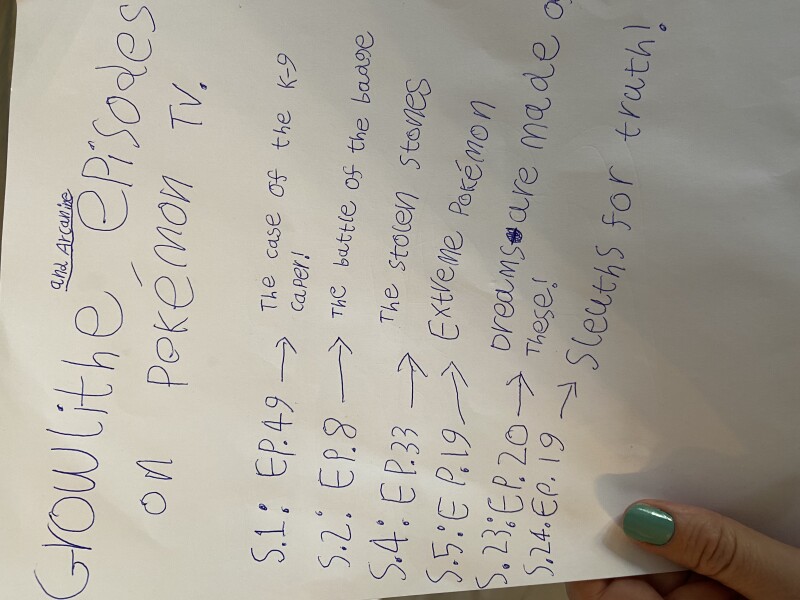 and Arcanine
Growlithe episodes
on Pokémon TV.
S.1: EP.49 → The case of the K-9
caper!
S.2: EP.8 → The battle of the badge
S.4: EP.33 → The stolen stones
S.5: EP.19 → Extreme Pokémon
S.23: EP.20 → Dreams are made of
These!
S.24: EP.19 → Sleuths for truth!